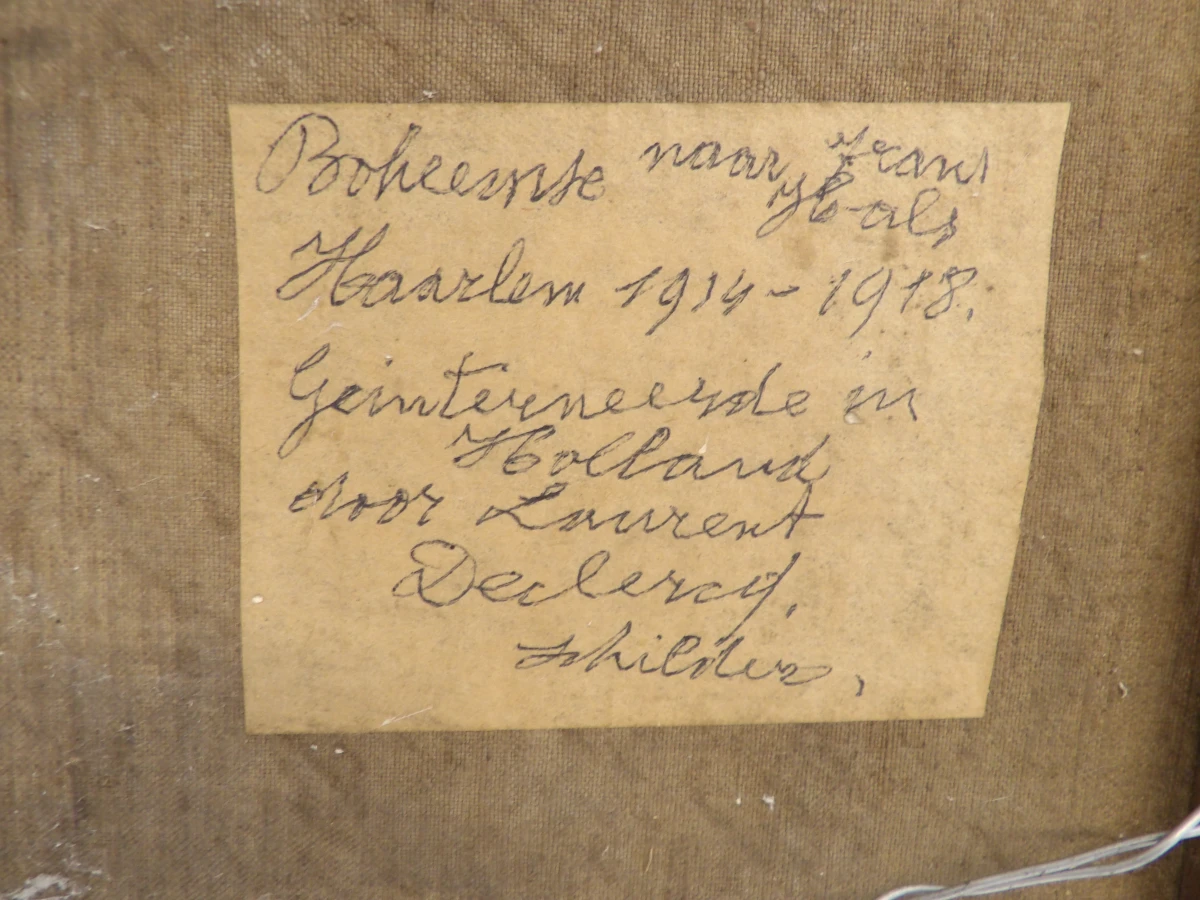 Boheemse naar Frans
Hals
Haarlem 1914-1918.
Geinterneerde in
Holland
door Laurent
Declercq,
schilder,